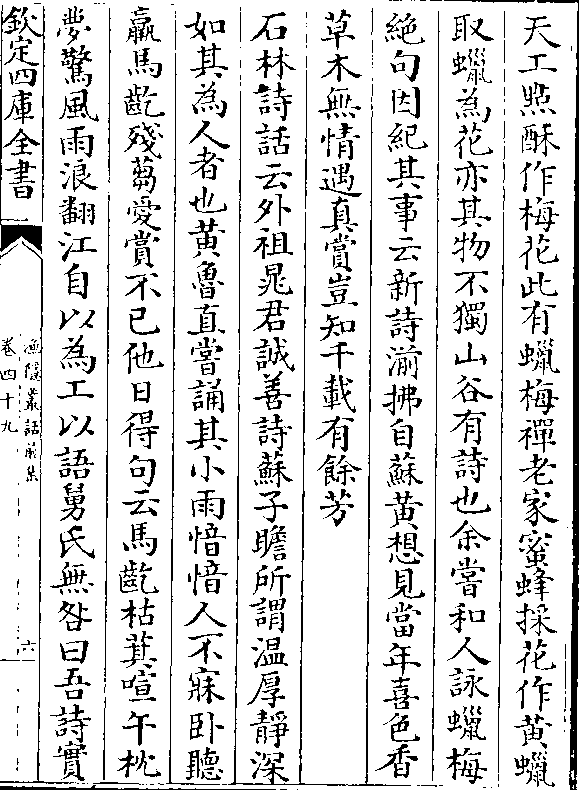 天工㸃酥作梅花此有蠟梅禪老家蜜蜂採花作黄蠟
取蠟為花亦其物不獨山谷有詩也余嘗和人詠蠟梅
絶句因紀其事云新詩湔拂自蘇黄想見當年喜色香
草木無情遇真賞豈知千載有餘芳
石林詩話云外祖晁君誠善詩蘇子瞻所謂温厚靜深
如其為人者也黄魯直嘗誦其小雨愔愔人不寐卧聽
羸馬齕殘蒭愛賞不已他日得句云馬齕枯萁喧午枕
夢驚風雨浪翻江自以為工以語舅氏無咎曰吾詩實
欽定四庫全書
漁隱叢話前集
卷四十九
六